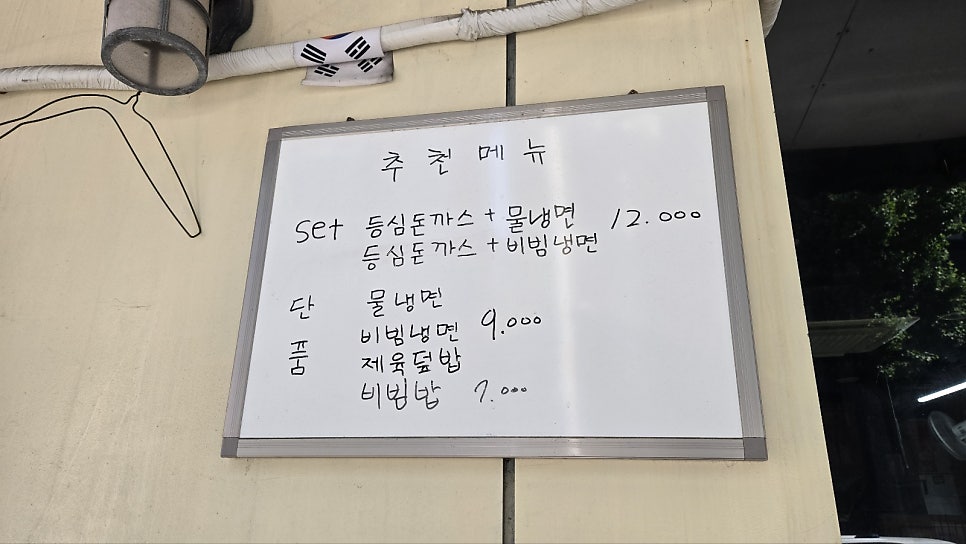 추천메뉴
set 등심돈까스 + 물냉면 12.000
등심돈까스 + 비빔냉면
단품
물냉면
비빔냉면 9.000
제육덮밥
비빔밥 7.000